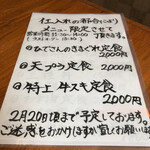 仕入れの都合により
メニュー限定させて
営業時間 11:30〜14:00 頂きます。
○ひでさんのきまぐれ定食
2000円
○天プラ定食 2000円
○特上キスキ定食
2000円
2月20日頃まで予定しております。
ご迷惑をおかけしますが宜しくお願いします